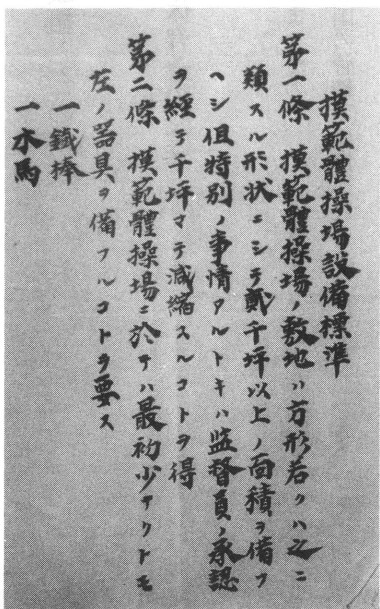 摸範體操場設備標準
第一條 摸範體操場ノ敷地ハ方形若クハ之ニ
類スル形狀ニシテ貳千坪以上ノ面積ヲ備フ
ヘシ但特別ノ事情アルトキハ監督員ノ承認
ヲ經テ千坪マテ減縮スルコトヲ得
第二條 摸範體操場ニ於テハ最初少ナクトモ
左ノ器具ヲ備フルコトヲ要ス
一鐵棒
一木馬